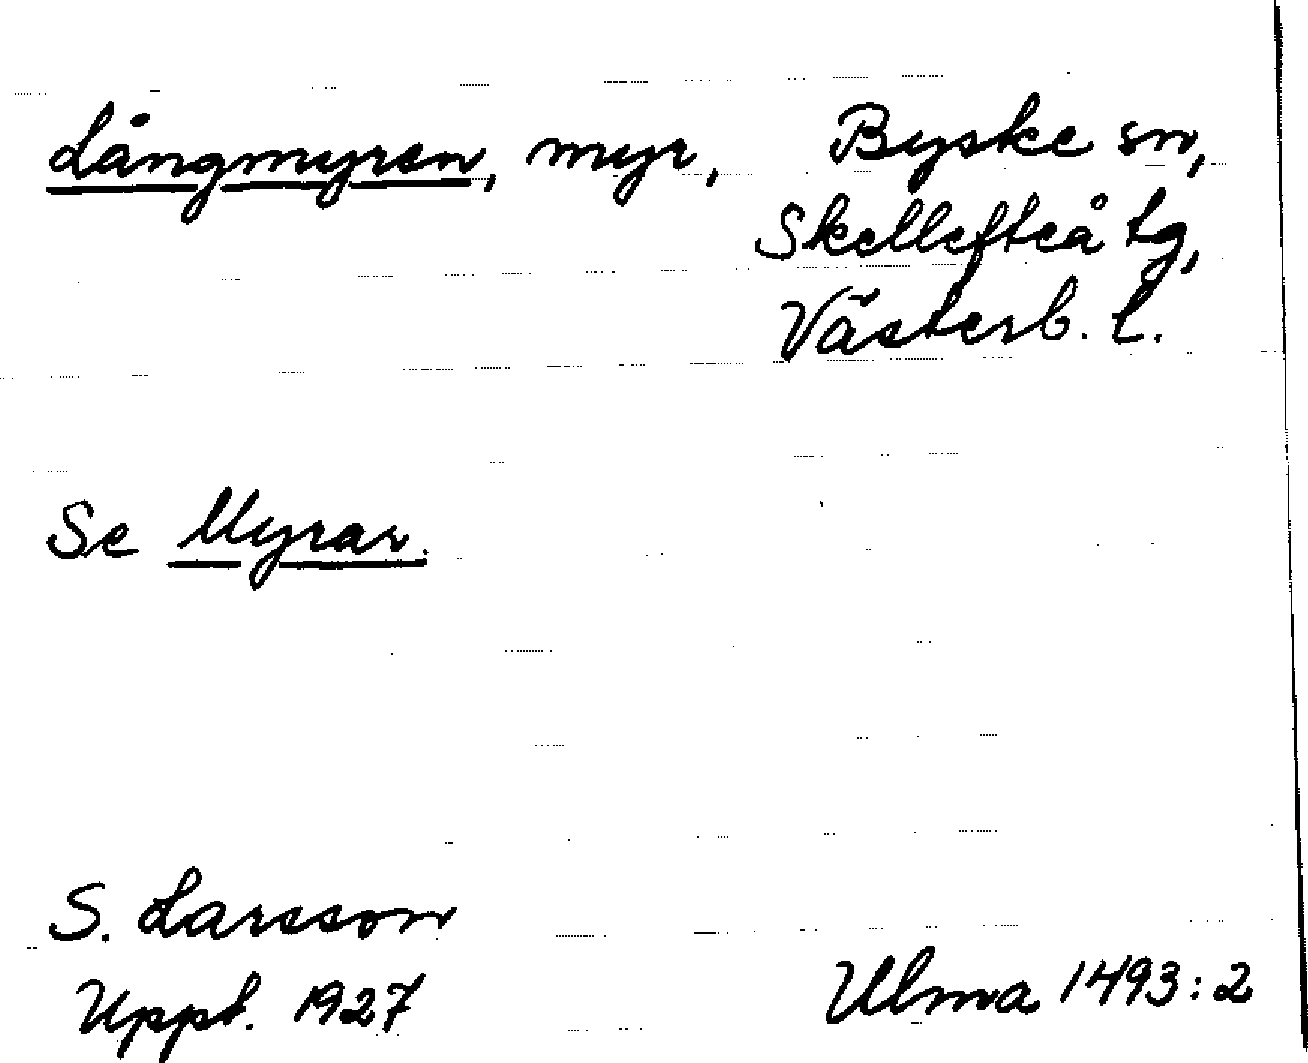 Långmyren, myr, Byske sn,
Skellefteå tg,
Västerb. l.
Se Myrar.
S. Larsson
Uppt. 1927
Ulma 1493:2